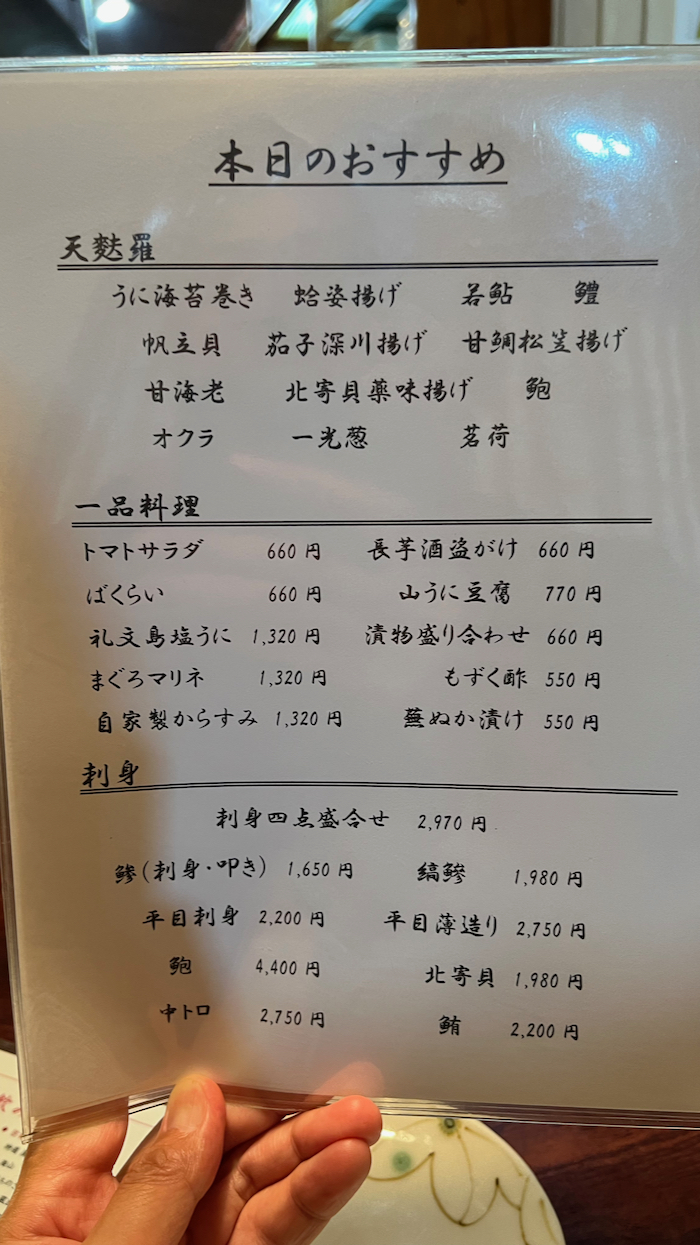 本日のおすすめ
天麩羅
うに海苔巻き 蛤姿揚げ 若鮎 鱧
帆立貝 茄子深川揚げ 甘鯛松笠揚げ
甘海老 北寄貝薬味揚げ 鮑
オクラ 一光葱 茗荷
一品料理
トマトサラダ 660円 長芋酒盗がけ 660円
ばくらい 660円 山うに豆腐 770円
礼文島塩うに 1,320円 漬物盛り合わせ 660円
まぐろマリネ 1,320円 もずく酢 550円
自家製からすみ 1,320円 蕪ぬか漬け 550円
刺身
刺身四点盛合せ 2,970円
鯵(刺身・叩き) 1,650円 縞鯵 1,980円
平目刺身 2,200円 平目薄造り 2,750円
鮑 4,400円 北寄貝 1,980円
中トロ 2,750円 鮪 2,200円